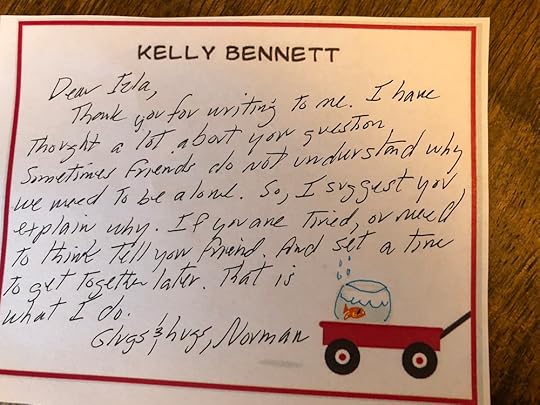 KELLY BENNETT
Dear Isla,
Thank you for writing to me. I have
thought a lot about your question
Sometimes friends do not understand why
we need to be alone. So, I suggest you
explain why. If you are tired, or need
to think tell your friend. And set a time
to get together later. That is
what I do.
Glugs & hugs, Norman